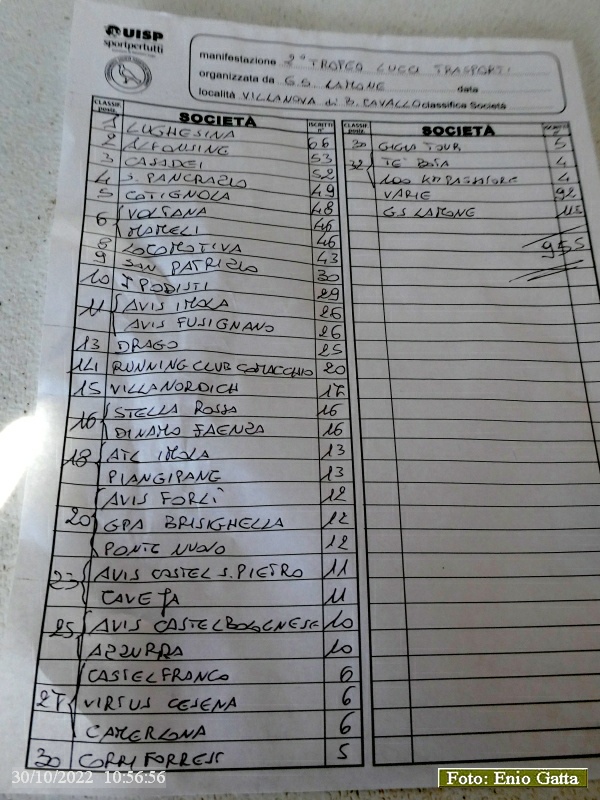 UISP
sportpertutti
manifestazione 2° TROFEO LUCCI TRASPORTI
organizzata da G.S. LAMONE data
località VILLANOVA di B. CAVALLO classifica Società
CLASSIF. SOCIETÀ ISCRITTI
1 LUGHESINA 66
2 ALFONSINE 53
3 CASADEI 52
4 S. PANCRAZIO 49
5 COTIGNOLA 48
6 VOLTANA 46
MAMELI 46
8 LOCOMOTIVA 43
9 SAN PATRIZIO 30
10 I PODISTI 29
11 AVIS IMOLA 26
AVIS FUSIGNANO 26
13 DRAGO 25
14 RUNNING CLUB COMACCHIO 20
15 VILLANORDICH 17
16 STELLA ROSSA 16
DINAMO FAENZA 16
18 ATL IMOLA 13
PIANGIPANE 13
20 AVIS FORLÌ 12
GPA BRISIGHELLA 12
PONTE NUOVO 12
23 AVIS CASTEL S. PIETRO 11
CAVEJA 11
25 AVIS CASTELBOLOGNESE 10
AZZURRA 10
27 CASTELFRANCO 6
VIRTUS CESENA 6
CAMERLONA 6
30 CORRI FORREST 5
CLASSIF. SOCIETÀ
30 GIGIA TOUR 5
32 TE' BOTA 4
100 KM PASSATORE 4
VARIE 92
GS LAMONE 115
955
30/10/2022 10:56:56
Foto: Enio Gatta